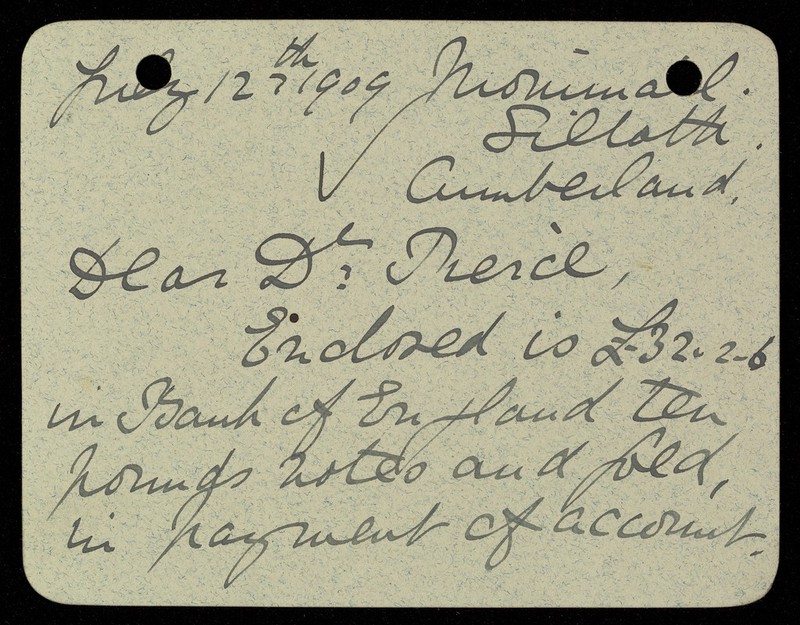 July 12th 1909
Silloth.
Cumberland.
Dear Dr. Pierce,
Enclosed is £32-2-6
in Bank of England ten
pounds notes and gold,
in payment of account.